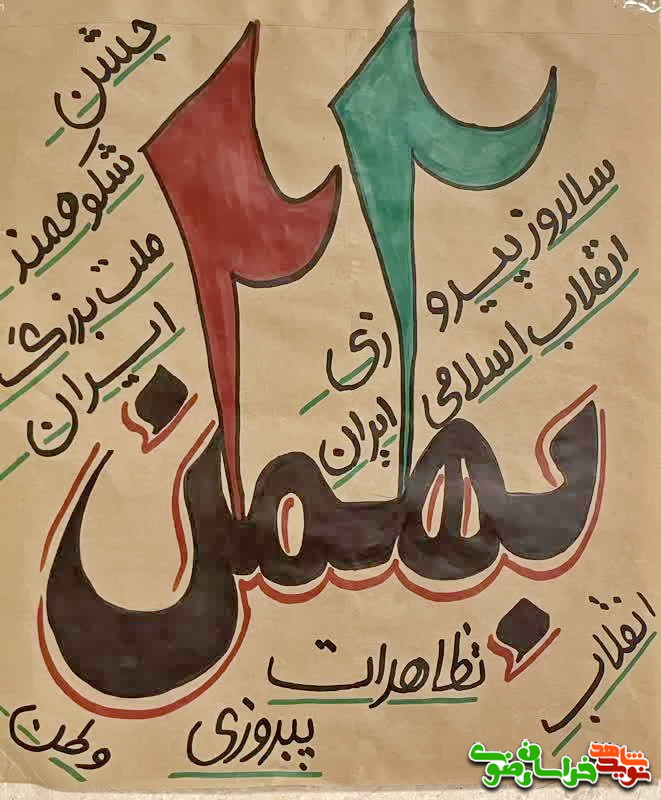 ۲۲
بهمن
سالروز پیروزی
انقلاب اسلامی
ایران
جشن
شکوهمند
ملت بزرگ
ایران
تظاهرات
انقلاب
پیروزی
وطن
نوید شاهد
خراسان رضوی